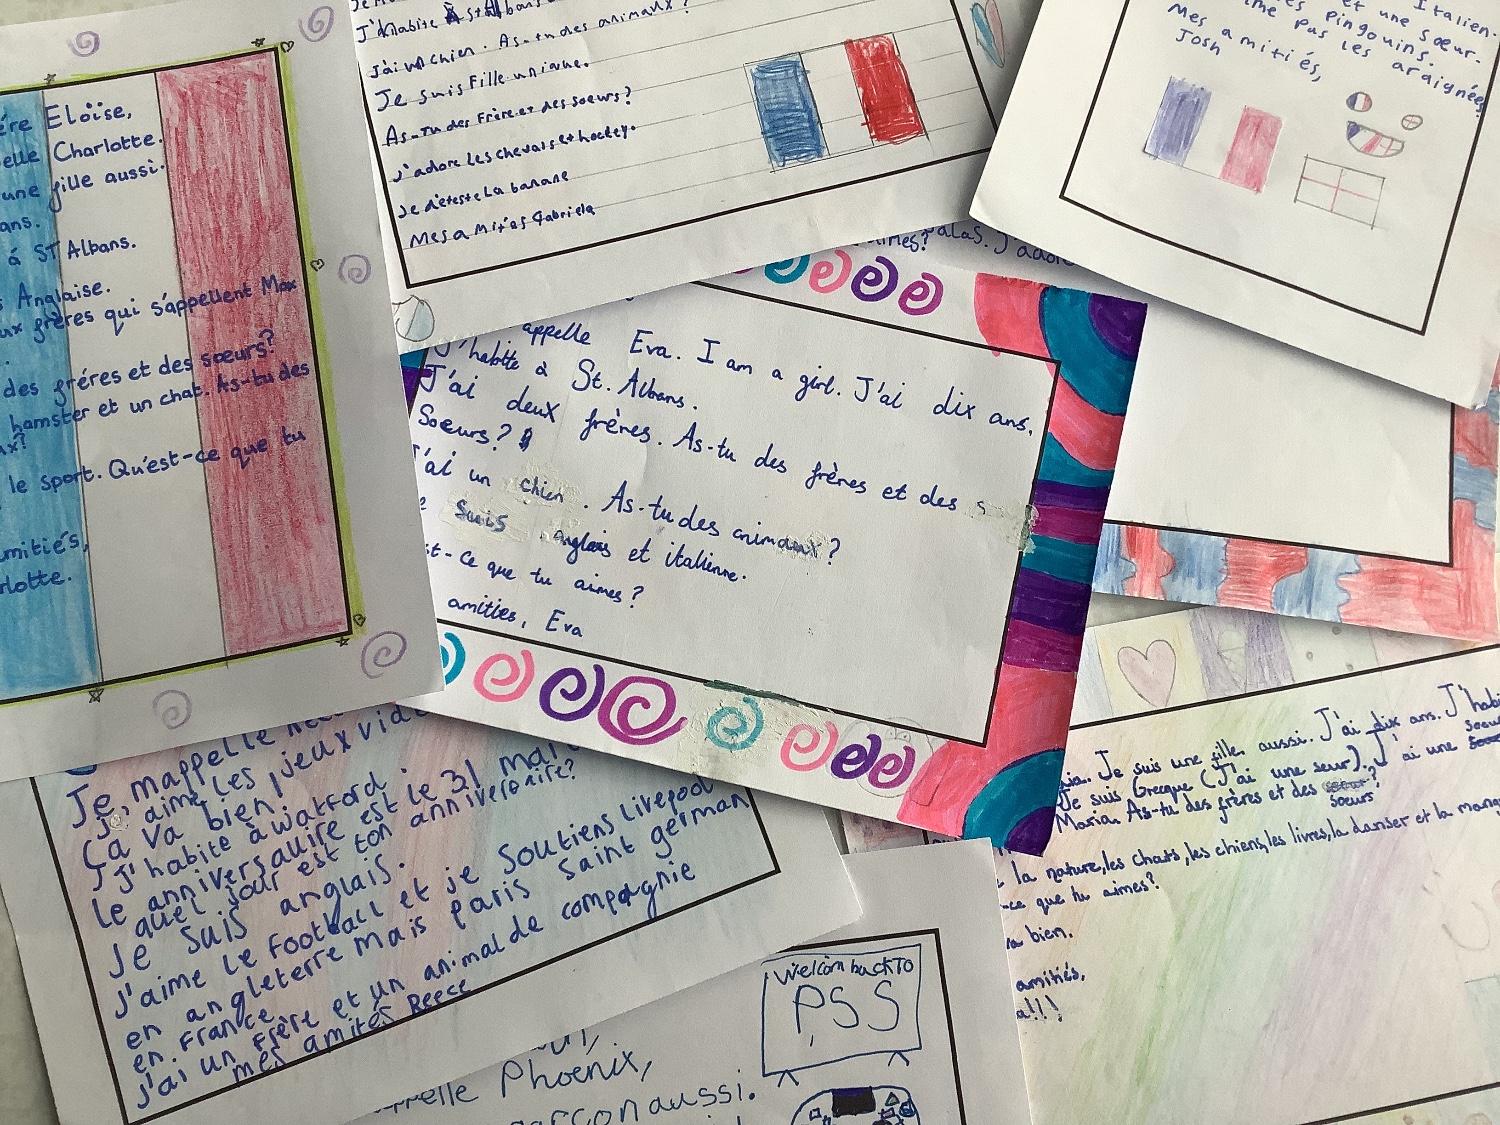 Eloïse,
elle Charlotte.
une fille aussi.
ans.
á ST Albans.
Anglaise.
ux frères qui s'appellent Max
des fréres et des sœurs?
hamster et un chat. As-tu des
ux?
le sport. Qu'est-ce que tu
amitiés,
rlotte.
J'habite à St Albans
J'ai un chien. As-tu des animaux?
Je suis fille unique.
As-tu des frère et des soeurs?
J'adore les chevals et hockey.
Je déteste La banane
Mes amités Gabriela
Italien.
et une sœur.
es pingouins.
ime pas les araignées
Mes amitiés,
Josh
palas. J'adore
aimes?
appelle Eva. I am a girl. J'ai dix ans.
J'habite à St. Albans.
J'ai deux frères. As-tu des frères et des s
Soeurs?
J'ai un chien. As-tu des animaux?
e suis anglais et italienne.
st-ce que tu aimes?
amities, Eva
Je mappelle
j'aime les jeux vide
Ça va bien!
J'habite à Watford.
le anniversauire est le 31 mai
quel jour est ton anniversaire?
Je suis anglais.
J'aime le football et je soutiens Livepool
en angleterre mais paris saint german
en France.
j'ai un frère et un animal de compagnie
mes amités Reece
Welcom back To
PSS
ppelle Phoenix,
garcon aussi.
ia. Je suis une fille aussi. J'ai dix ans. J'habi
Je suis Grecque (J'ai une seur). J'ai une soeur
Maria. As-tu des frères et des soeurs?
la nature, les chats, les chiens, les livres, la danser et la mang
-ce que tu aimes?
va bien.
amitiés,
a!!!